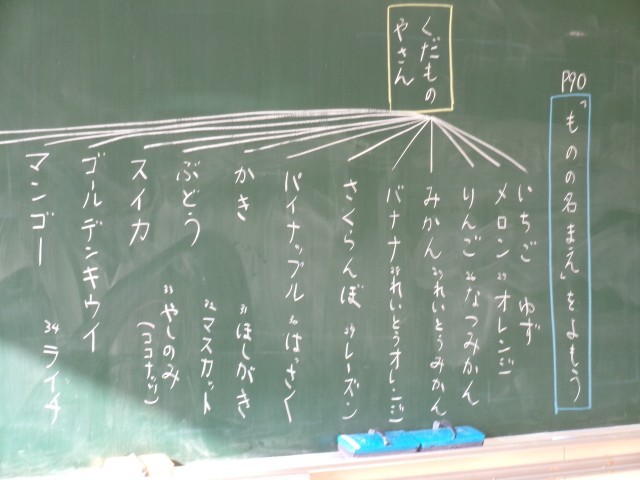 P90
「ものの名まえ」をよもう
くだもの
やさん
いちご ゆず
メロン 25 オレンジ
りんご 26 なつみかん
みかん 27 れいとうみかん
バナナ 28 れいとうオレンジ
さくらんぼ 29 レーズン
パイナップル 30 はっさく
かき 31 ほしがき
ぶどう 32 マスカット
スイカ 33 やしのみ
(ココナッツ)
ゴールデンキウイ
マンゴー 34 ライチ